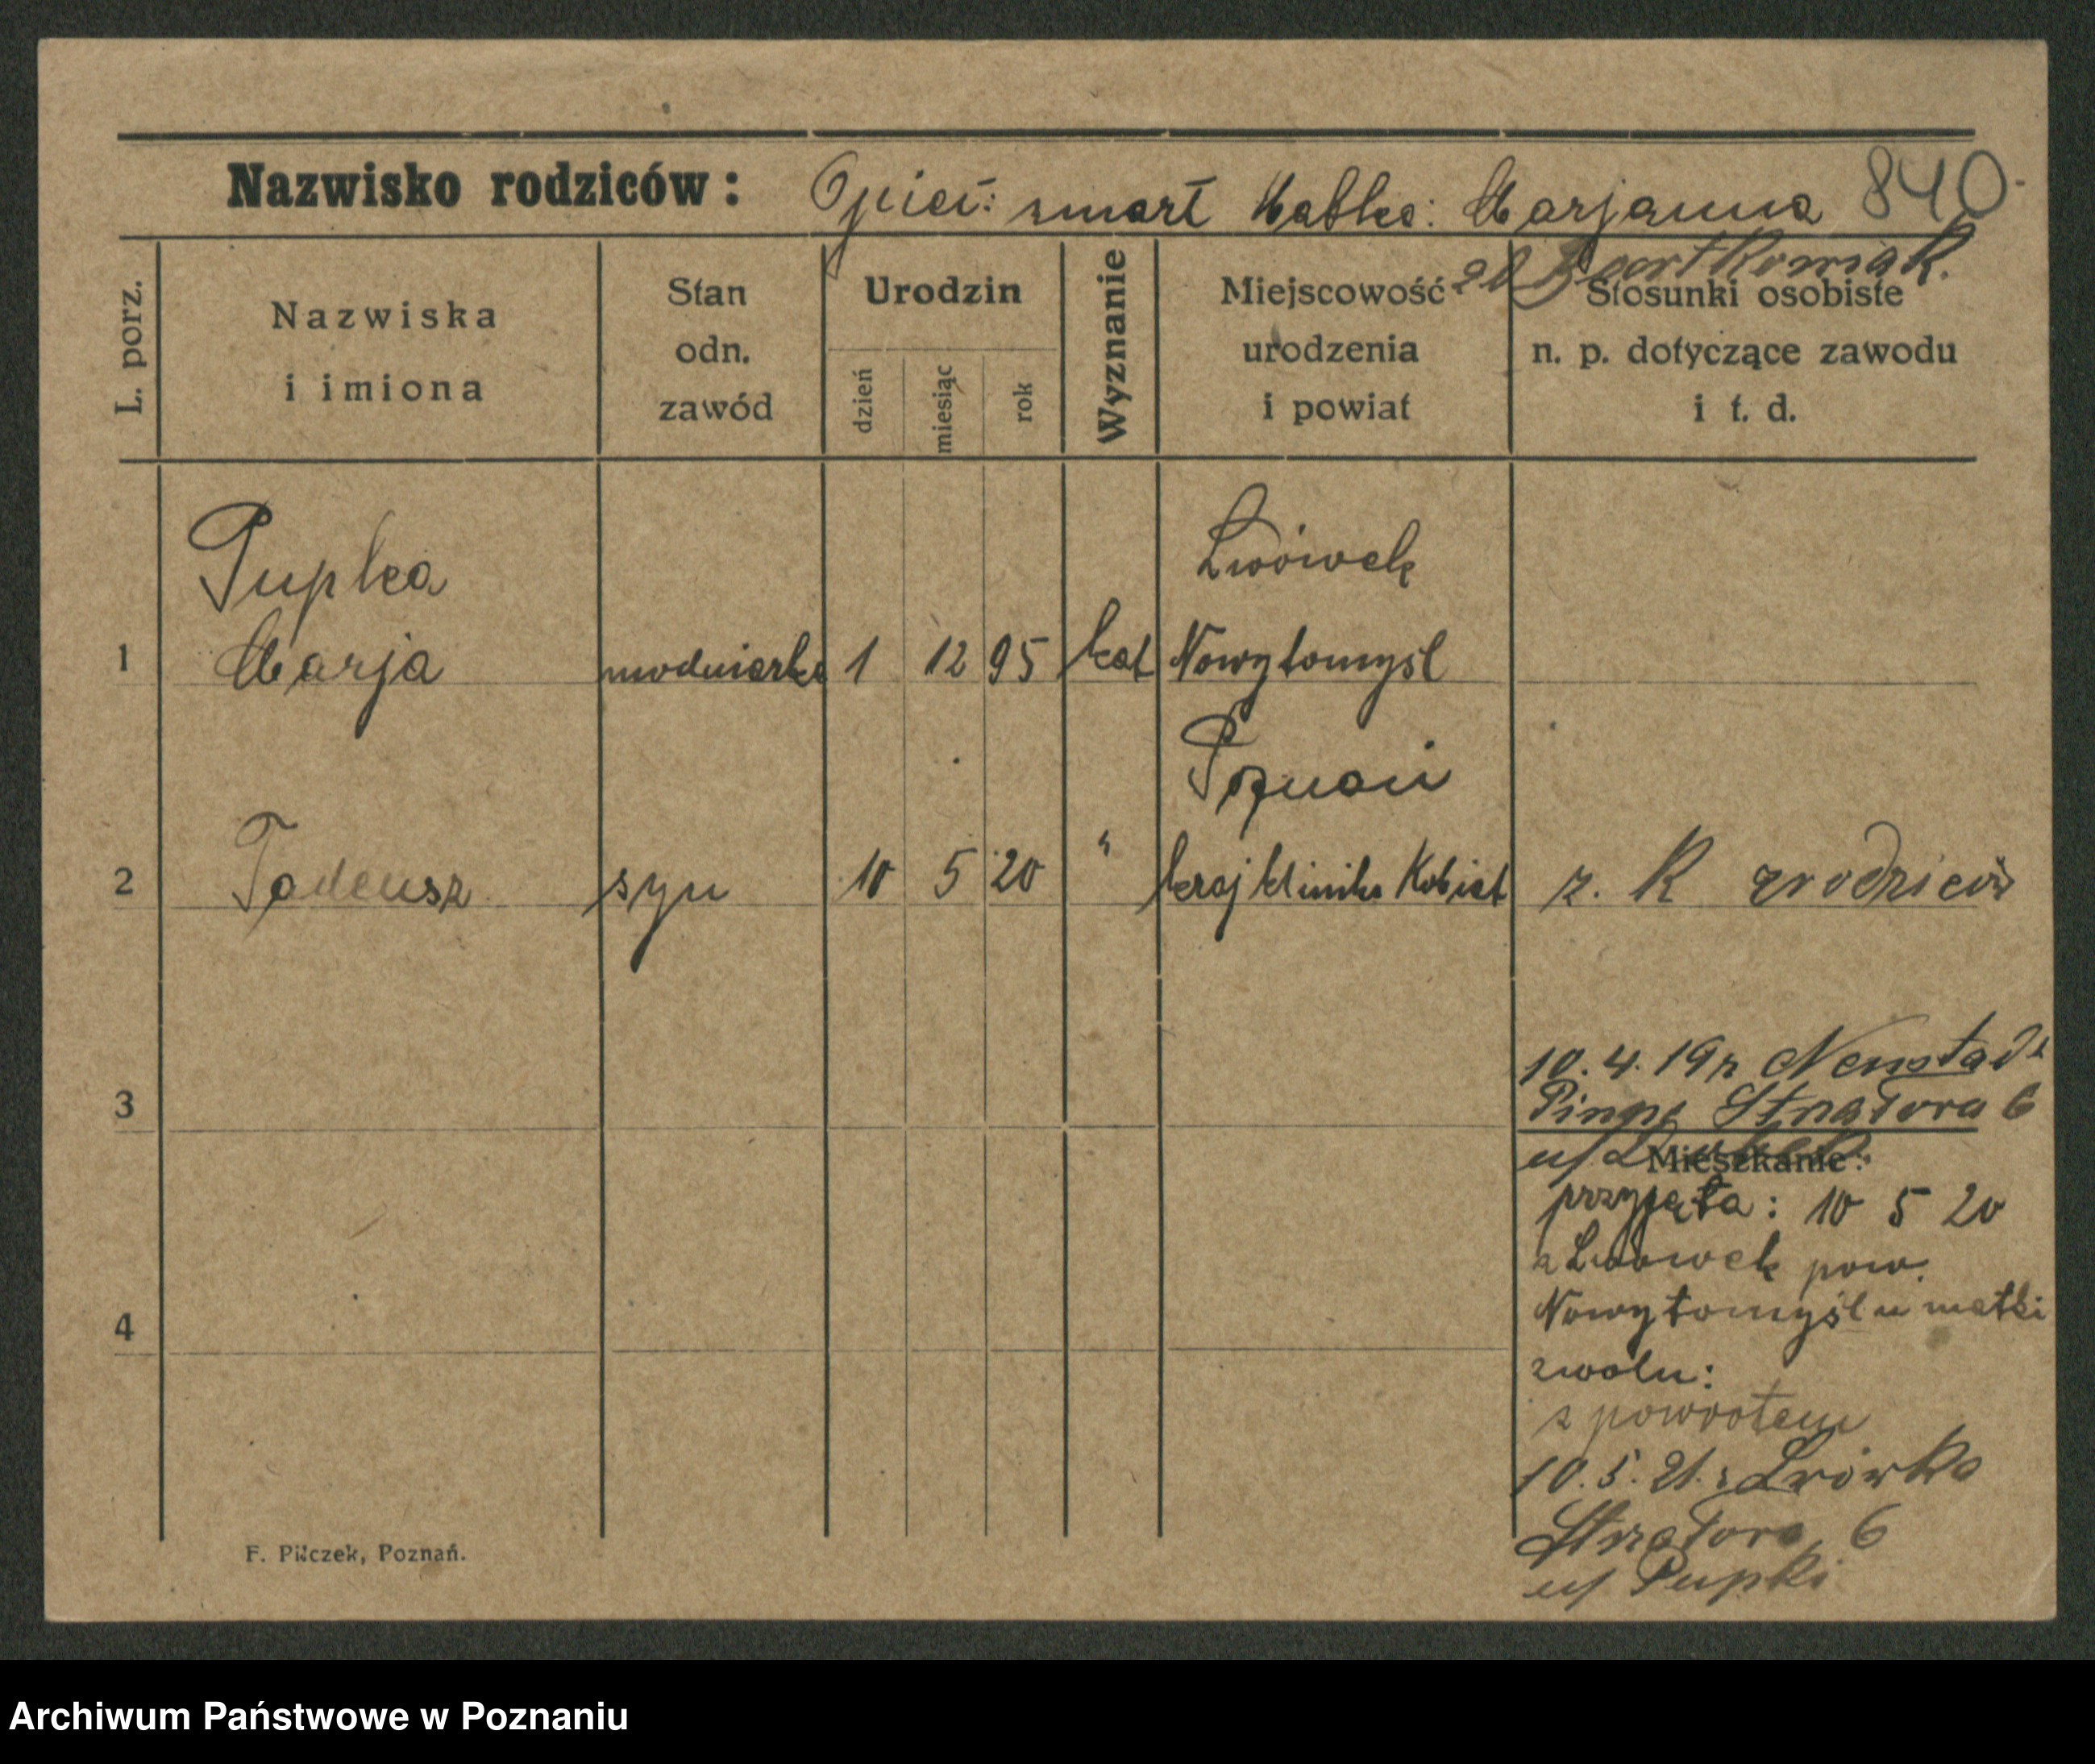 Nazwisko rodziców: Ojciec: zmarł Matka: Marjanna 840
zd Bartkowiak.
L. porz.
Nazwiska
i imiona
Stan
odn.
zawód
Urodzin
dzień
miesiąc
rok
Wyznanie
Miejscowość
urodzenia
i powiat
Stosunki osobiste
n. p. dotyczące zawodu
i t. d.
Pupka
Lwówek
1 Marja modniarka 1 12 95 kat Nowytomyśl
Poznań
2 Tadeusz syn 10 5 20 " kraj klinika Kobiet z. K rodziców
10.4.19 z Neustadt
3 Pinne Strzałowa 6
u/
Mieszkanie:
przyjęta: 10 5 20
z Lwówek pow.
4 Nowytomyśl u matki
zwoln:
z powrotem
10.5.21. z Lwówka
Strzałowa 6
u/ Pupki
F. Pilczek, Poznań.
Archiwum Państwowe w Poznaniu